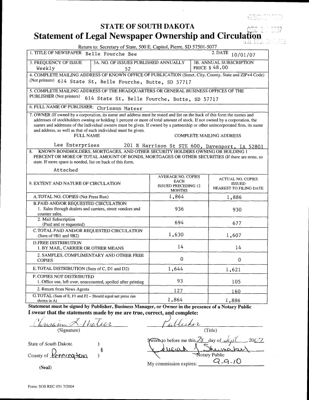 STATE OF SOUTH DAKOTA
Statement of Legal Newspaper Ownership and Circulation
Return to: Secretary of State, 500 E. Capitol, Pierre, SD 57501-5077
1. TITLE OF NEWSPAPER Belle Fourche Bee
2. DATE 10/01/07
3. FREQUENCY OF ISSUE Weekly
3A. NO. OF ISSUES PUBLISHED ANNUALLY 52
3B. ANNUAL SUBSCRIPTION PRICE $ 48.00
4. COMPLETE MAILING ADDRESS OF KNOWN OFFICE OF PUBLICATION (Street, City, County, State and ZIP+4 Code)
(Not printers) 614 State St, Belle Fourche, Butte, SD 57717
5. COMPLETE MAILING ADDRESS OF THE HEADQUARTERS OR GENERAL BUSINESS OFFICES OF THE
PUBLISHER (Not printers) 614 State St, Belle Fourche, Butte, SD 57717
6. FULL NAME OF PUBLISHER
7. OWNER (If owned by a corporation, its name and address must be stated and list on the back of this form the names and
addresses of stockholders owning or holding 1 percent or more of total amount of stock. If not owned by a corporation, the
names and addresses of the individual owners must be given. If owned by a partnership or other unincorporated firm, its name
and address, as well as that of each individual must be given.
FULL NAME COMPLETE MAILING ADDRESS
Lee Enterprises 201 N Harrison St STE 600, Davenport, IA 52801
8. KNOWN BONDHOLDERS, MORTGAGES, AND OTHER SECURITY HOLDERS OWNING OR HOLDING 1
PERCENT OR MORE OF TOTAL AMOUNT OF BONDS, MORTGAGES OR OTHER SECURITIES (If there are none, so
state. If more space is needed, list on back of this form.
Attached
9. EXTENT AND NATURE OF CIRCULATION
AVERAGE NO. COPIES EACH ISSUED PRECEDING 12 MONTHS
ACTUAL NO. COPIES ISSUED NEAREST TO FILING DATE
A. TOTAL NO. COPIES (Net Press Run) 1,864 1,886
B. PAID AND/OR REQUESTED CIRCULATION
1. Sales through dealers and carriers, street vendors and counter sales. 936 930
2. Mail Subscription (Paid and or requested) 694 677
C. TOTAL PAID AND/OR REQUESTED CIRCULATION (Sum of 9B1 and 9B2) 1,630 1,607
D. FREE DISTRIBUTION
1. BY MAIL, CARRIER OR OTHER MEANS 14 14
2. SAMPLES, COMPLIMENTARY AND OTHER FREE COPIES 0 0
E. TOTAL DISTRIBUTION (Sum of C, D1 and D2) 1,644 1,621
F. COPIES NOT DISTRIBUTED
1. Office use, left over, unaccounted, spoiled after printing 93 105
2. Return from News Agents 127 160
G. TOTAL (Sum of E, F1 and F2 – Should equal net press run shown in A) 1,864 1,886
Statement must be signed by Publisher, Business Manager, or Owner in the presence of a Notary Public
I swear that the statements made by me are true, correct, and complete:
Publisher
(Signature) (Title)
State of South Dakota )
County of Pennington )
(Seal)
Sworn to before me this 28 day of Sept 2007
Notary Public
My commission expires: 9.9.10
Form: SOS REC 051 7/2004